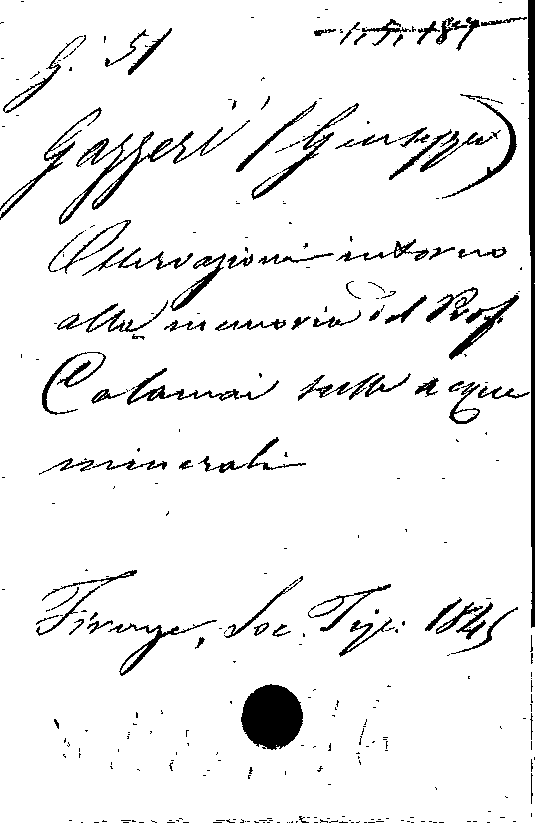 G. 51
1, 5, 187
Gazzeri (Giuseppe)
Osservazioni intorno
alla memoria del Prof.
Calamai sulle acque
minerali
Firenze, Soc. Tip: 1845